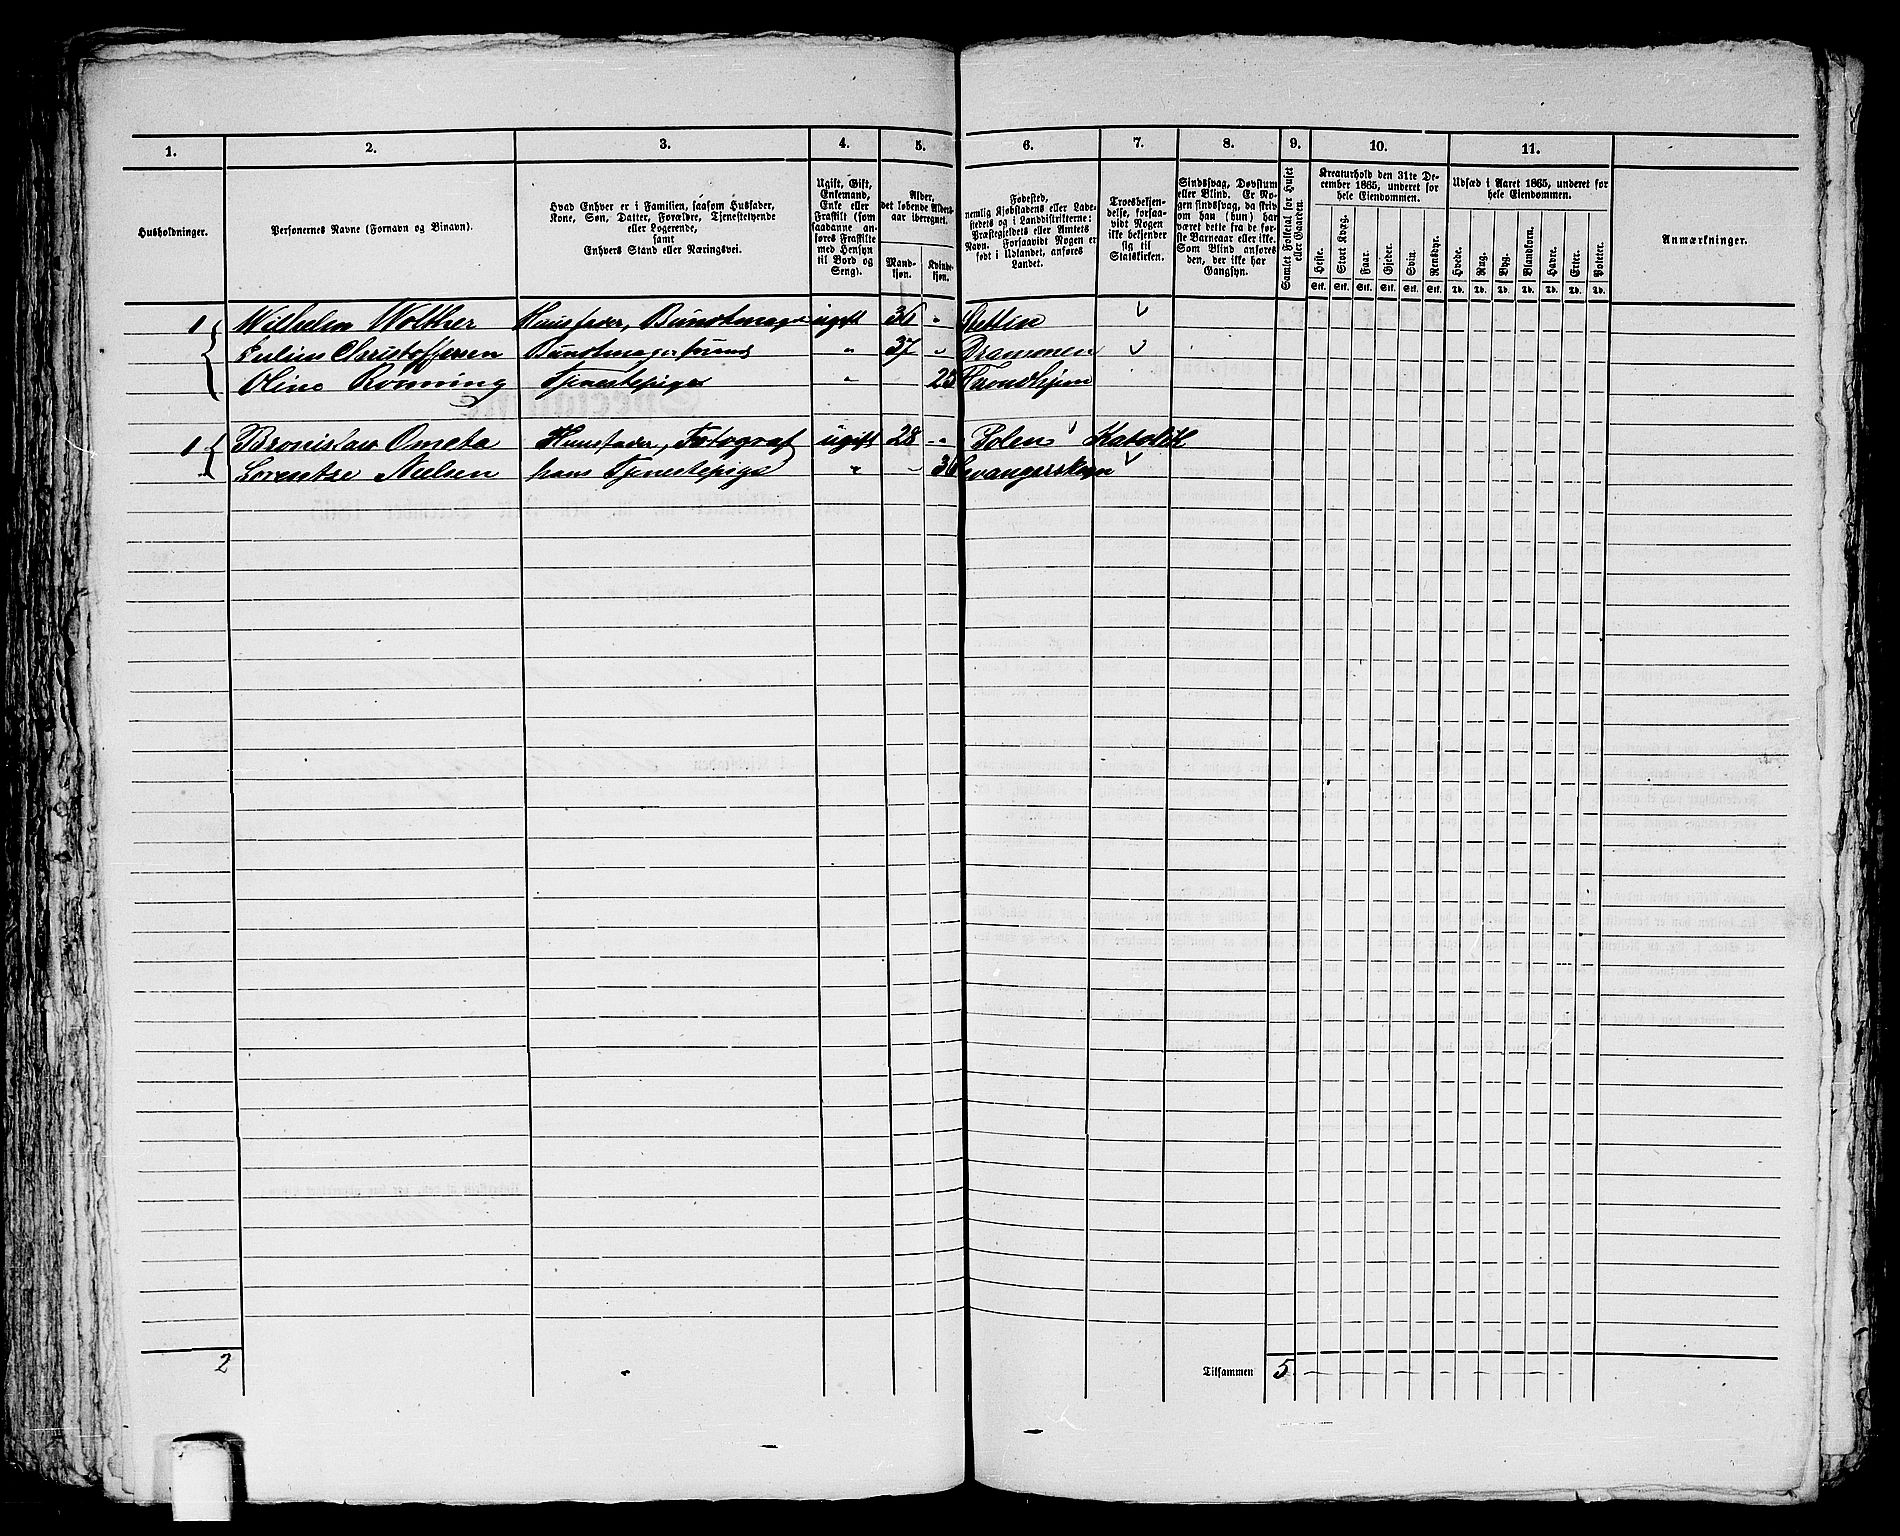 1. 2. 3. 4. 5. 6. 7. 8. 9. 10. 11.
Husholdninger.
Personernes Navne (Fornavn og Binavn).
Hvad Enhver er i Familien, saasom Husfader,
Kone, Søn, Datter, Forældre, Tjenestetyende
eller Logerende,
samt
Enhvers Stand eller Næringsvei.
Ugift, Gift,
Enkemand,
Enke eller
Fraskilt (som
saadanne an-
føres Fraskilte
med Hensyn
til Bord og
Seng).
Alder,
det løbende Alders-
aar iberegnet.
Mand-
kjøn.
Kvinde-
kjøn.
Fødested,
nemlig Kjøbstadens eller Lade-
stedets og i Landdistrikterne:
Præstegjeldets eller Amtets
Navn. Forsaavidt Nogen er
født i Udlandet, anføres
Landet.
Troesbekjen-
delse, forsaa-
vidt Nogen
ikke bekjender
sig til
Statskirken.
Sindssvag, Døvstum
eller Blind. Er No-
gen sindssvag, skrives
om han (hun) har
været dette fra de før-
ste Barneaar eller ikke.
Som Blind anføres
den, der ikke har
Gangsyn.
Samlet Folketal for Huset
eller Gaarden.
Kreaturhold den 31te De-
cember 1865, underet for
hele Eiendommen.
Heste. Stort Kvæg. Faar. Gjeder. Sviin. Rensdyr.
Stk. Stk. Stk. Stk. Stk. Stk.
Udsæd i Aaret 1865, underet for
hele Eiendommen.
Hvede. Rug. Byg. Blandkorn. Havre. Erter. Poteter.
Td. Td. Td. Td. Td. Td. Td.
Anmærkninger.
1 Wilhelm Wolther Huusfader, Bundtmager ugift 36 " Stettin
Julius Christoffersen Bundtmagersvend " 37 " Drammen
Oline Rønning Tjenestepige " 25 Trondhjem
1 Bronislaw Ometa Huusfader, Fotograf ugift 28 " Polen Katolik
Lorentze Nielsen hans Tjenestepige " " 36 Levangerskogn
2 Tilsammen 5